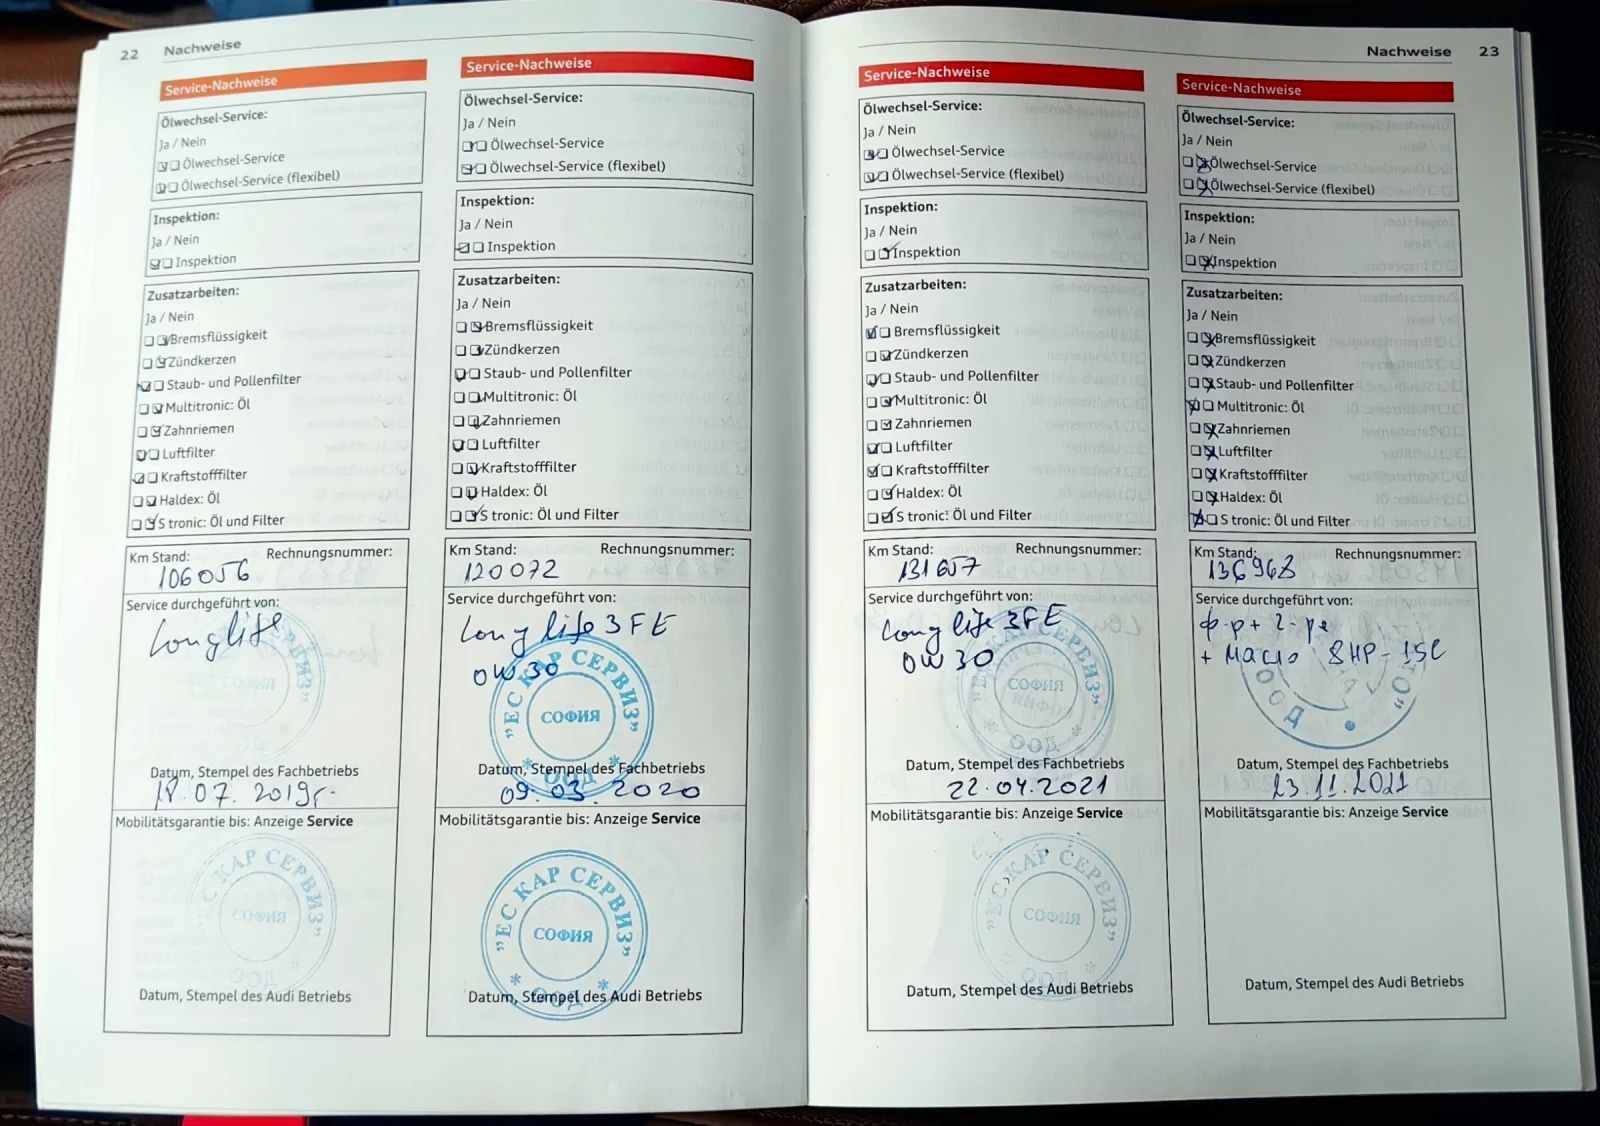 22 Nachweise
Service-Nachweise
Ölwechsel-Service:
Ja / Nein
Ölwechsel-Service
Ölwechsel-Service (flexibel)
Inspektion:
Ja / Nein
Inspektion
Zusatzarbeiten:
Ja / Nein
Bremsflüssigkeit
Zündkerzen
Staub- und Pollenfilter
Multitronic: Öl
Zahnriemen
Luftfilter
Kraftstofffilter
Haldex: Öl
S tronic: Öl und Filter
Km Stand: Rechnungsnummer:
106056
Service durchgeführt von:
Longlife
СЕРВИЗ”
СОФИЯ
ООД
Datum, Stempel des Fachbetriebs
18.07.2019г.
Mobilitätsgarantie bis: Anzeige Service
„ЕС КАР СЕРВИЗ”
СОФИЯ
ООД
Datum, Stempel des Audi Betriebs
Service-Nachweise
Ölwechsel-Service:
Ja / Nein
Ölwechsel-Service
Ölwechsel-Service (flexibel)
Inspektion:
Ja / Nein
Inspektion
Zusatzarbeiten:
Ja / Nein
Bremsflüssigkeit
Zündkerzen
Staub- und Pollenfilter
Multitronic: Öl
Zahnriemen
Luftfilter
Kraftstofffilter
Haldex: Öl
S tronic: Öl und Filter
Km Stand: Rechnungsnummer:
120072
Service durchgeführt von:
Long life 3 FE
0W30
"ЕС КАР СЕРВИЗ"
СОФИЯ
* ООД *
Datum, Stempel des Fachbetriebs
09.03.2020
Mobilitätsgarantie bis: Anzeige Service
"ЕС КАР СЕРВИЗ"
СОФИЯ
* ООД *
Datum, Stempel des Audi Betriebs
Nachweise 23
Service-Nachweise
Ölwechsel-Service:
Ja / Nein
Ölwechsel-Service
Ölwechsel-Service (flexibel)
Inspektion:
Ja / Nein
Inspektion
Zusatzarbeiten:
Ja / Nein
Bremsflüssigkeit
Zündkerzen
Staub- und Pollenfilter
Multitronic: Öl
Zahnriemen
Luftfilter
Kraftstofffilter
Haldex: Öl
S tronic: Öl und Filter
Km Stand: Rechnungsnummer:
131657
Service durchgeführt von:
Long life 3FE
0W30
"ЕС КАР СЕРВИЗ"
СОФИЯ
* ООД *
Datum, Stempel des Fachbetriebs
22.04.2021
Mobilitätsgarantie bis: Anzeige Service
"ЕС КАР СЕРВИЗ"
СОФИЯ
* ООД *
Datum, Stempel des Audi Betriebs
Service-Nachweise
Ölwechsel-Service:
Ja / Nein
Ölwechsel-Service
Ölwechsel-Service (flexibel)
Inspektion:
Ja / Nein
Inspektion
Zusatzarbeiten:
Ja / Nein
Bremsflüssigkeit
Zündkerzen
Staub- und Pollenfilter
Multitronic: Öl
Zahnriemen
Luftfilter
Kraftstofffilter
Haldex: Öl
S tronic: Öl und Filter
Km Stand: Rechnungsnummer:
136968
Service durchgeführt von:
ф-р + г-ре
+ масло 8HP - 15L
ООД
Datum, Stempel des Fachbetriebs
23.11.2021
Mobilitätsgarantie bis: Anzeige Service
Datum, Stempel des Audi Betriebs